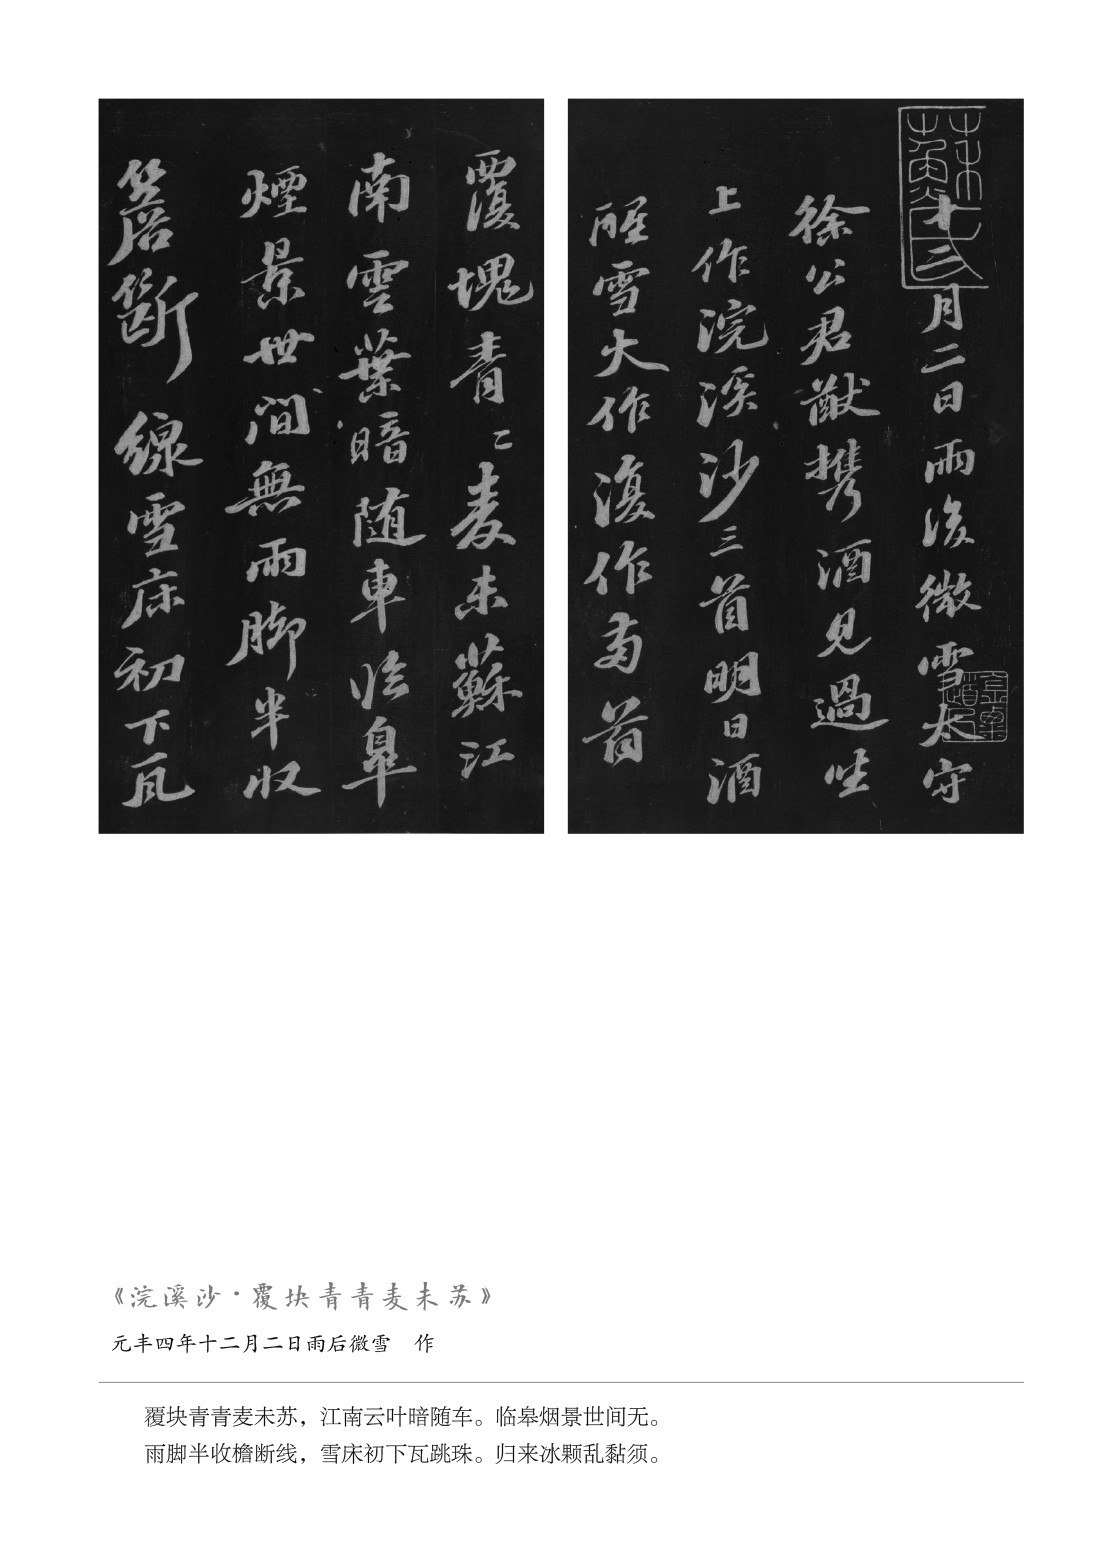 十二月二日雨後微雪太守
徐公君猷携酒見過坐
上作浣溪沙三首明日酒
醒雪大作復作両首
覆塊青〻麦未蘇江
南雲葉暗随車临皐
煙景世間無雨脚半收
簷斷線雪床初下瓦
《浣溪沙·覆块青青麦未苏》
元丰四年十二月二日雨后微雪 作
覆块青青麦未苏，江南云叶暗随车。临皋烟景世间无。
雨脚半收檐断线，雪床初下瓦跳珠。归来冰颗乱黏须。